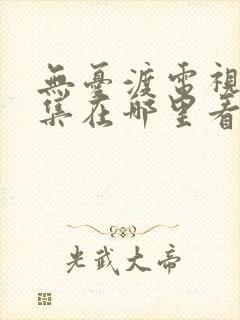 無憂渡電視
集在哪里看
光武大帝